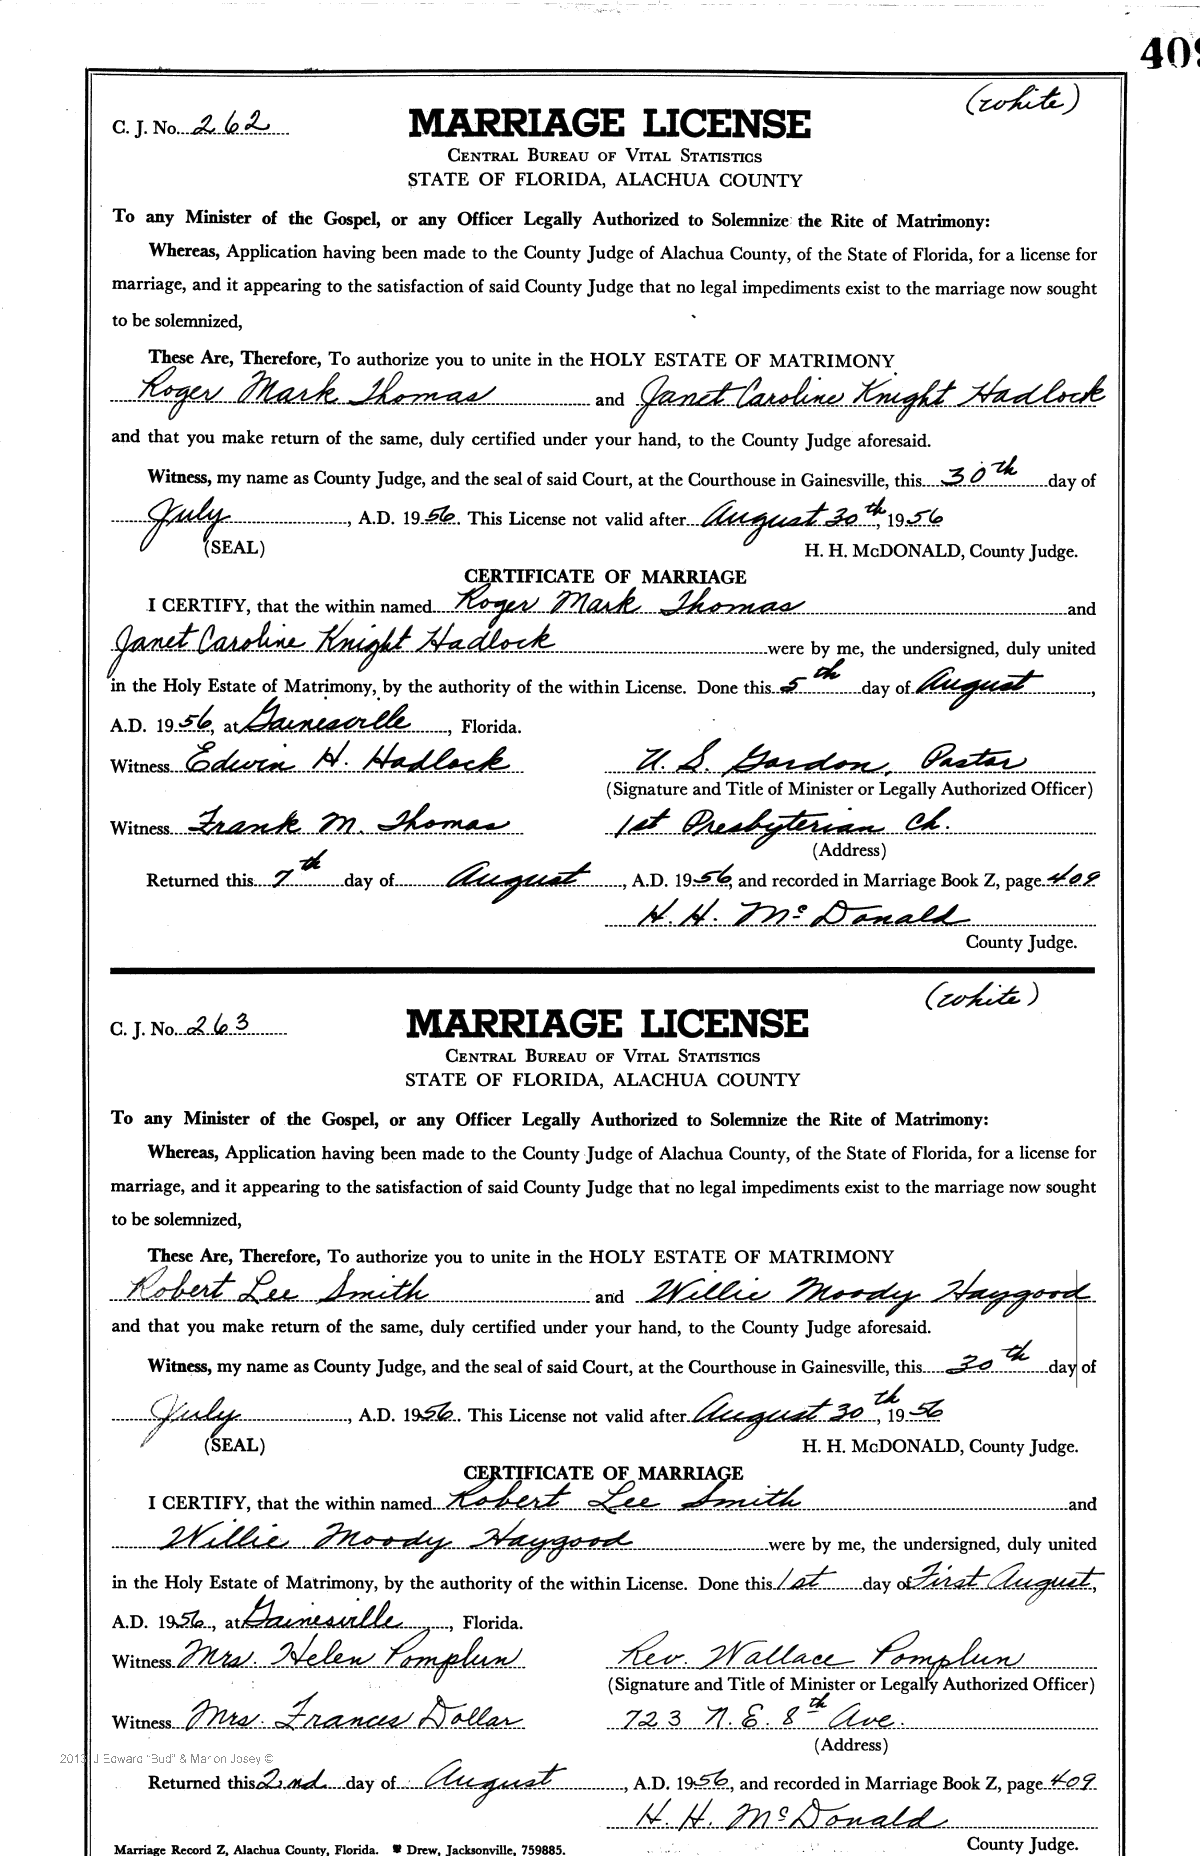 409
(white)
C. J. No. 262
MARRIAGE LICENSE
CENTRAL BUREAU OF VITAL STATISTICS
STATE OF FLORIDA, ALACHUA COUNTY
To any Minister of the Gospel, or any Officer Legally Authorized to Solemnize the Rite of Matrimony:
Whereas, Application having been made to the County Judge of Alachua County, of the State of Florida, for a license for
marriage, and it appearing to the satisfaction of said County Judge that no legal impediments exist to the marriage now sought
to be solemnized,
These Are, Therefore, To authorize you to unite in the HOLY ESTATE OF MATRIMONY
Roger Mark Thomas and Janet Caroline Knight Hadlock
and that you make return of the same, duly certified under your hand, to the County Judge aforesaid.
Witness, my name as County Judge, and the seal of said Court, at the Courthouse in Gainesville, this 30th day of
July, A.D. 1956. This License not valid after August 30th, 1956
(SEAL) H. H. McDONALD, County Judge.
CERTIFICATE OF MARRIAGE
I CERTIFY, that the within named Roger Mark Thomas and
Janet Caroline Knight Hadlock were by me, the undersigned, duly united
in the Holy Estate of Matrimony, by the authority of the within License. Done this 5th day of August,
A.D. 1956, at Gainesville, Florida.
Witness Edwin H. Hadlock U. S. Gordon, Pastor
(Signature and Title of Minister or Legally Authorized Officer)
Witness Frank M. Thomas 1st Presbyterian Ch.
(Address)
Returned this 7th day of August, A.D. 1956, and recorded in Marriage Book Z, page 409
H. H. McDonald
County Judge.
(white)
C. J. No. 263
MARRIAGE LICENSE
CENTRAL BUREAU OF VITAL STATISTICS
STATE OF FLORIDA, ALACHUA COUNTY
To any Minister of the Gospel, or any Officer Legally Authorized to Solemnize the Rite of Matrimony:
Whereas, Application having been made to the County Judge of Alachua County, of the State of Florida, for a license for
marriage, and it appearing to the satisfaction of said County Judge that no legal impediments exist to the marriage now sought
to be solemnized,
These Are, Therefore, To authorize you to unite in the HOLY ESTATE OF MATRIMONY
Robert Lee Smith and Willie Moody Haygood
and that you make return of the same, duly certified under your hand, to the County Judge aforesaid.
Witness, my name as County Judge, and the seal of said Court, at the Courthouse in Gainesville, this 30th day of
July, A.D. 1956. This License not valid after August 30th, 1956
(SEAL) H. H. McDONALD, County Judge.
CERTIFICATE OF MARRIAGE
I CERTIFY, that the within named Robert Lee Smith and
Willie Moody Haygood were by me, the undersigned, duly united
in the Holy Estate of Matrimony, by the authority of the within License. Done this 1st day of First August,
A.D. 1956, at Gainesville, Florida.
Witness Mrs. Helen Pomplun Rev. Wallace Pomplun
(Signature and Title of Minister or Legally Authorized Officer)
Witness Mrs. Frances Dollar 723 N.E. 8th Ave.
(Address)
2013 J Edward "Bud" & Marion Josey ©
Returned this 2nd day of August, A.D. 1956, and recorded in Marriage Book Z, page 409
H. H. McDonald
County Judge.
Marriage Record Z, Alachua County, Florida. Drew, Jacksonville, 759885.